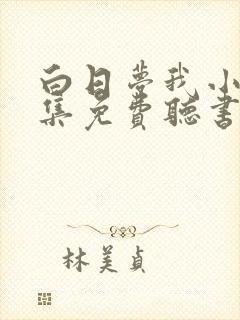 白日梦我小
集免费聽書
林美貞